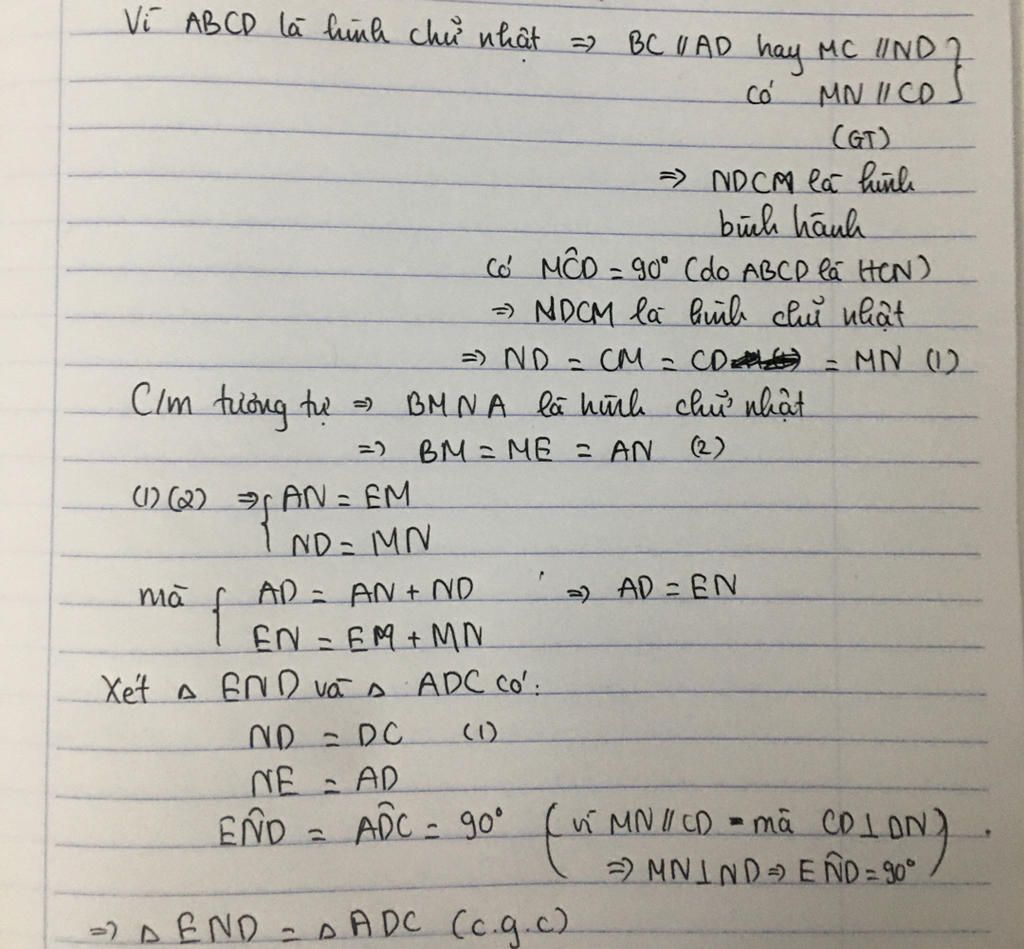 Vì ABCD là hình chữ nhật ⇒ BC // AD hay MC // ND }
có MN // CD
(GT)
⇒ NDCM là hình
bình hành
có MĈD = 90° (do ABCD là HCN)
⇒ NDCM là hình chữ nhật
⇒ ND = CM = CD = MN (1)
C/m tương tự ⇒ BMNA là hình chữ nhật
⇒ BM = ME = AN (2)
(1) (2) ⇒ { AN = EM
ND = MN
mà { AD = AN + ND ⇒ AD = EN
EN = EM + MN
Xét △ END và △ ADC có:
ND = DC (1)
NE = AD
EN̂D = AD̂C = 90° (vì MN // CD mà CD ⊥ DN)
⇒ MN ⊥ ND ⇒ EN̂D = 90°
⇒ △ END = △ ADC (c.g.c)